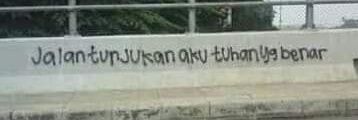 Jalan tunjukan aku tuhan yg benar